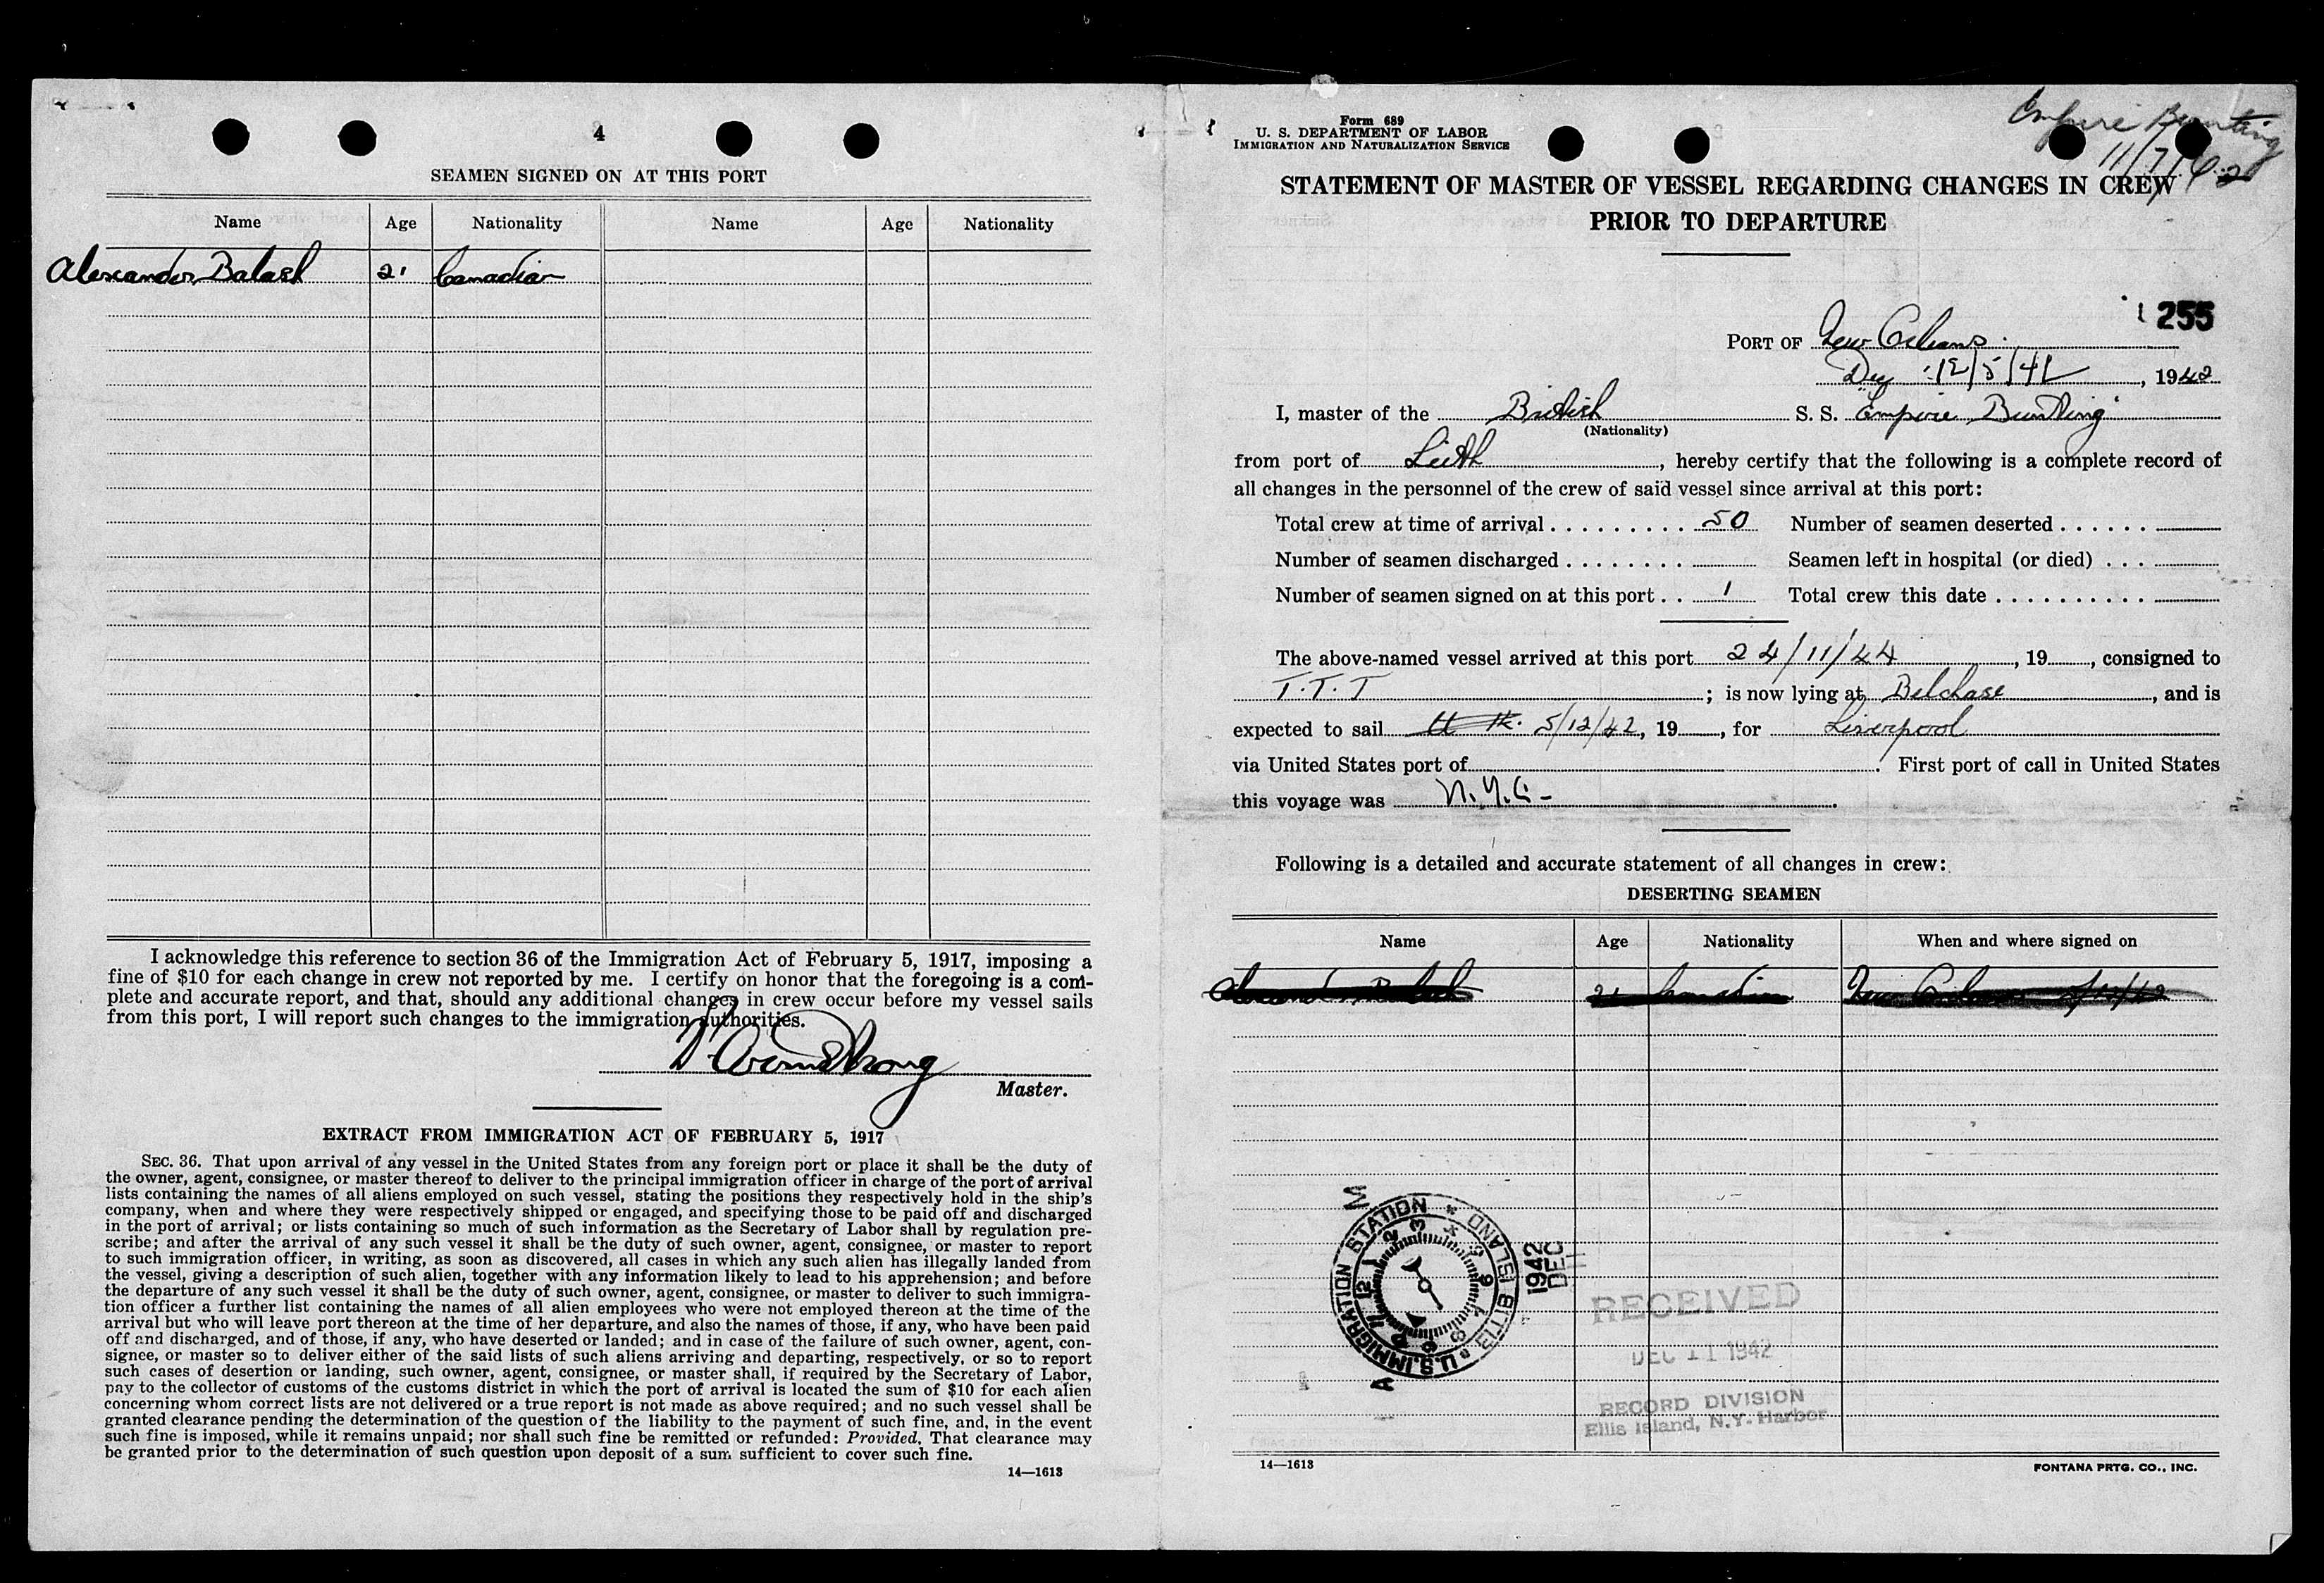 4
SEAMEN SIGNED ON AT THIS PORT
Name Age Nationality Name Age Nationality
Alexander Balash 21 Canadian
I acknowledge this reference to section 36 of the Immigration Act of February 5, 1917, imposing a
fine of $10 for each change in crew not reported by me. I certify on honor that the foregoing is a com-
plete and accurate report, and that, should any additional changes in crew occur before my vessel sails
from this port, I will report such changes to the immigration authorities.
Armstrong
Master.
EXTRACT FROM IMMIGRATION ACT OF FEBRUARY 5, 1917
SEC. 36. That upon arrival of any vessel in the United States from any foreign port or place it shall be the duty of
the owner, agent, consignee, or master thereof to deliver to the principal immigration officer in charge of the port of arrival
lists containing the names of all aliens employed on such vessel, stating the positions they respectively hold in the ship's
company, when and where they were respectively shipped or engaged, and specifying those to be paid off and discharged
in the port of arrival; or lists containing so much of such information as the Secretary of Labor shall by regulation pre-
scribe; and after the arrival of any such vessel it shall be the duty of such owner, agent, consignee, or master to report
to such immigration officer, in writing, as soon as discovered, all cases in which any such alien has illegally landed from
the vessel, giving a description of such alien, together with any information likely to lead to his apprehension; and before
the departure of any such vessel it shall be the duty of such owner, agent, consignee, or master to deliver to such immigra-
tion officer a further list containing the names of all alien employees who were not employed thereon at the time of the
arrival but who will leave port thereon at the time of her departure, and also the names of those, if any, who have been paid
off and discharged, and of those, if any, who have deserted or landed; and in case of the failure of such owner, agent, con-
signee, or master so to deliver either of the said lists of such aliens arriving and departing, respectively, or so to report
such cases of desertion or landing, such owner, agent, consignee, or master shall, if required by the Secretary of Labor,
pay to the collector of customs of the customs district in which the port of arrival is located the sum of $10 for each alien
concerning whom correct lists are not delivered or a true report is not made as above required; and no such vessel shall be
granted clearance pending the determination of the question of the liability to the payment of such fine, and, in the event
such fine is imposed, while it remains unpaid; nor shall such fine be remitted or refunded: Provided, That clearance may
be granted prior to the determination of such question upon deposit of a sum sufficient to cover such fine.
14—1613
Empire Bunting
11/7/42
Form 689
U. S. DEPARTMENT OF LABOR
IMMIGRATION AND NATURALIZATION SERVICE
STATEMENT OF MASTER OF VESSEL REGARDING CHANGES IN CREW
PRIOR TO DEPARTURE
255
PORT OF New Orleans
12/5/42, 1942
I, master of the British S. S. "Empire Bunting"
(Nationality)
from port of Leith, hereby certify that the following is a complete record of
all changes in the personnel of the crew of said vessel since arrival at this port:
Total crew at time of arrival . . . . . . . . . 50 Number of seamen deserted . . . . . .
Number of seamen discharged . . . . . . . . Seamen left in hospital (or died) . . .
Number of seamen signed on at this port . . 1 Total crew this date . . . . . . . . . .
The above-named vessel arrived at this port 24/11/44, 19 , consigned to
T.T.T ; is now lying at Belchase, and is
expected to sail 5/12/42, 19 , for Liverpool
via United States port of . First port of call in United States
this voyage was N.Y.C-
Following is a detailed and accurate statement of all changes in crew:
DESERTING SEAMEN
Name Age Nationality When and where signed on
Alexander Balash 21 Canadian New Orleans 5/12/42
U.S. IMMIGRATION STATION * ELLIS ISLAND
1942 DEC 11
RECEIVED
DEC 11 1942
RECORD DIVISION
Ellis Island, N.Y. Harbor
14—1613
FONTANA PRTG. CO., INC.